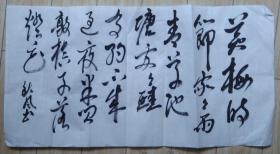 黄梅时
节家々雨
青草池
塘处々蛙
有约不来
过夜半闲
敲棋子落
灯花
秋风书